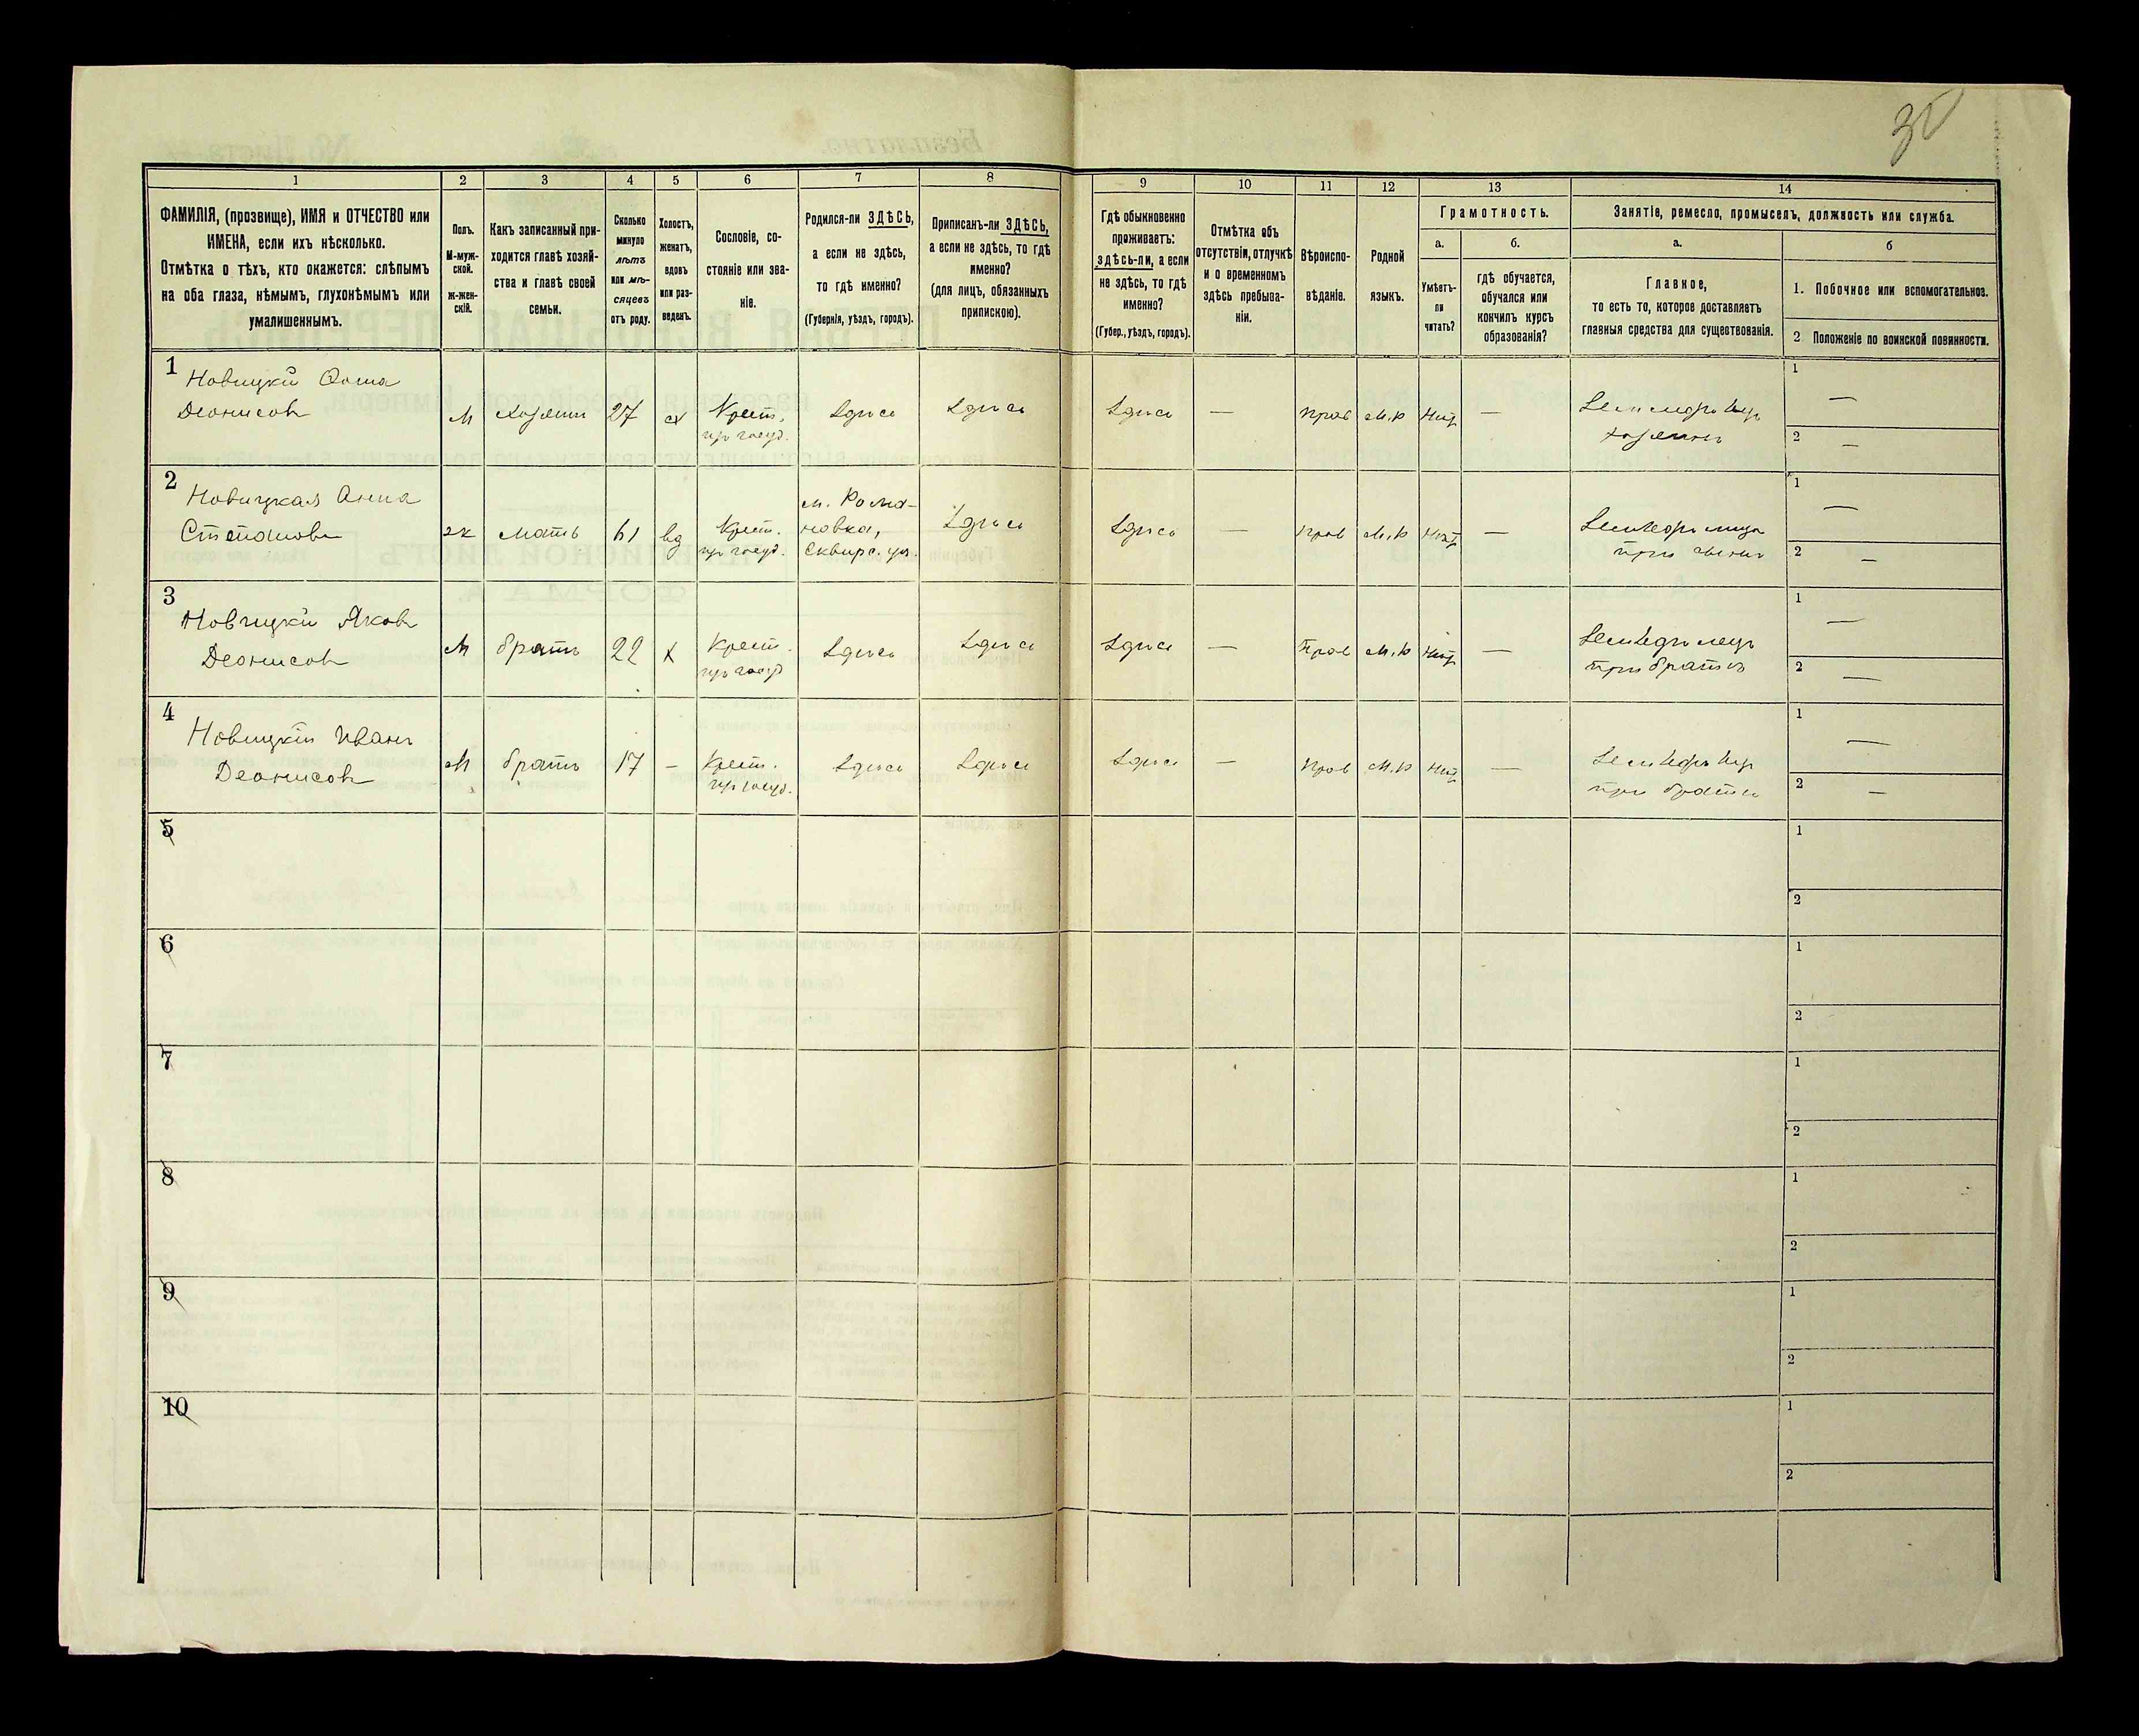 30
1 2 3 4 5 6 7 8 9 10 11 12 13 14
ФАМИЛІЯ, (прозвище), ИМЯ и ОТЧЕСТВО или
ИМЕНА, если ихъ нѣсколько.
Отмѣтка о тѣхъ, кто окажется: слѣпымъ
на оба глаза, нѣмымъ, глухонѣмымъ или
умалишеннымъ.
Полъ.
М-муж-
ской.
ж-жен-
скій.
Какъ записанный при-
ходится главѣ хозяй-
ства и главѣ своей
семьи.
Сколько
минуло
лѣтъ
или мѣ-
сяцевъ
отъ роду.
Холостъ,
женатъ,
вдовъ
или раз-
веденъ.
Сословіе, со-
стояніе или зва-
ніе.
Родился-ли ЗДѢСЬ,
а если не здѣсь,
то гдѣ именно?
(Губернія, уѣздъ, городъ).
Приписанъ-ли ЗДѢСЬ,
а если не здѣсь, то гдѣ
именно?
(для лицъ, обязанныхъ
припискою).
Гдѣ обыкновенно
проживаетъ:
здѣсь-ли, а если
не здѣсь, то гдѣ
именно?
(Губер., уѣздъ, городъ).
Отмѣтка объ
отсутствіи, отлучкѣ
и о временномъ
здѣсь пребыва-
ніи.
Вѣроиспо-
вѣданіе.
Родной
языкъ.
Грамотность.
а.
Умѣетъ-
ли
читать?
б.
гдѣ обучается,
обучался или
кончилъ курсъ
образованія?
Занятіе, ремесло, промыселъ, должность или служба.
а.
Главное,
то есть то, которое доставляетъ
главныя средства для существованія.
б
1. Побочное или вспомогательное.
2. Положеніе по воинской повинности.
1 Новицкій Фома
Деонисовъ
М хозяинъ 27 х Крест.
из госуд.
здѣсь здѣсь здѣсь — прав М.р нѣтъ —
Земледѣлецъ
хозяинъ
1 —
2 —
2 Новицкая Анна
Степанова
ж мать 61 вд Крест.
из госуд.
м. Рома-
новка,
Сквирс. уѣз.
здѣсь здѣсь — прав М.р нѣтъ —
Земледѣлица
при сынѣ
1 —
2 —
3 Новицкій Яковъ
Деонисовъ
М братъ 22 х Крест.
из госуд
здѣсь здѣсь здѣсь — прав М.р нѣтъ —
Земледѣлецъ
при братѣ
1 —
2 —
4 Новицкій Иванъ
Деонисовъ
М братъ 17 — Крест.
из госуд.
здѣсь здѣсь здѣсь — прав М.р нѣтъ —
Земледѣлецъ
при братѣ
1 —
2 —
5
1
2
6
1
2
7
1
2
8
1
2
9
1
2
10
1
2